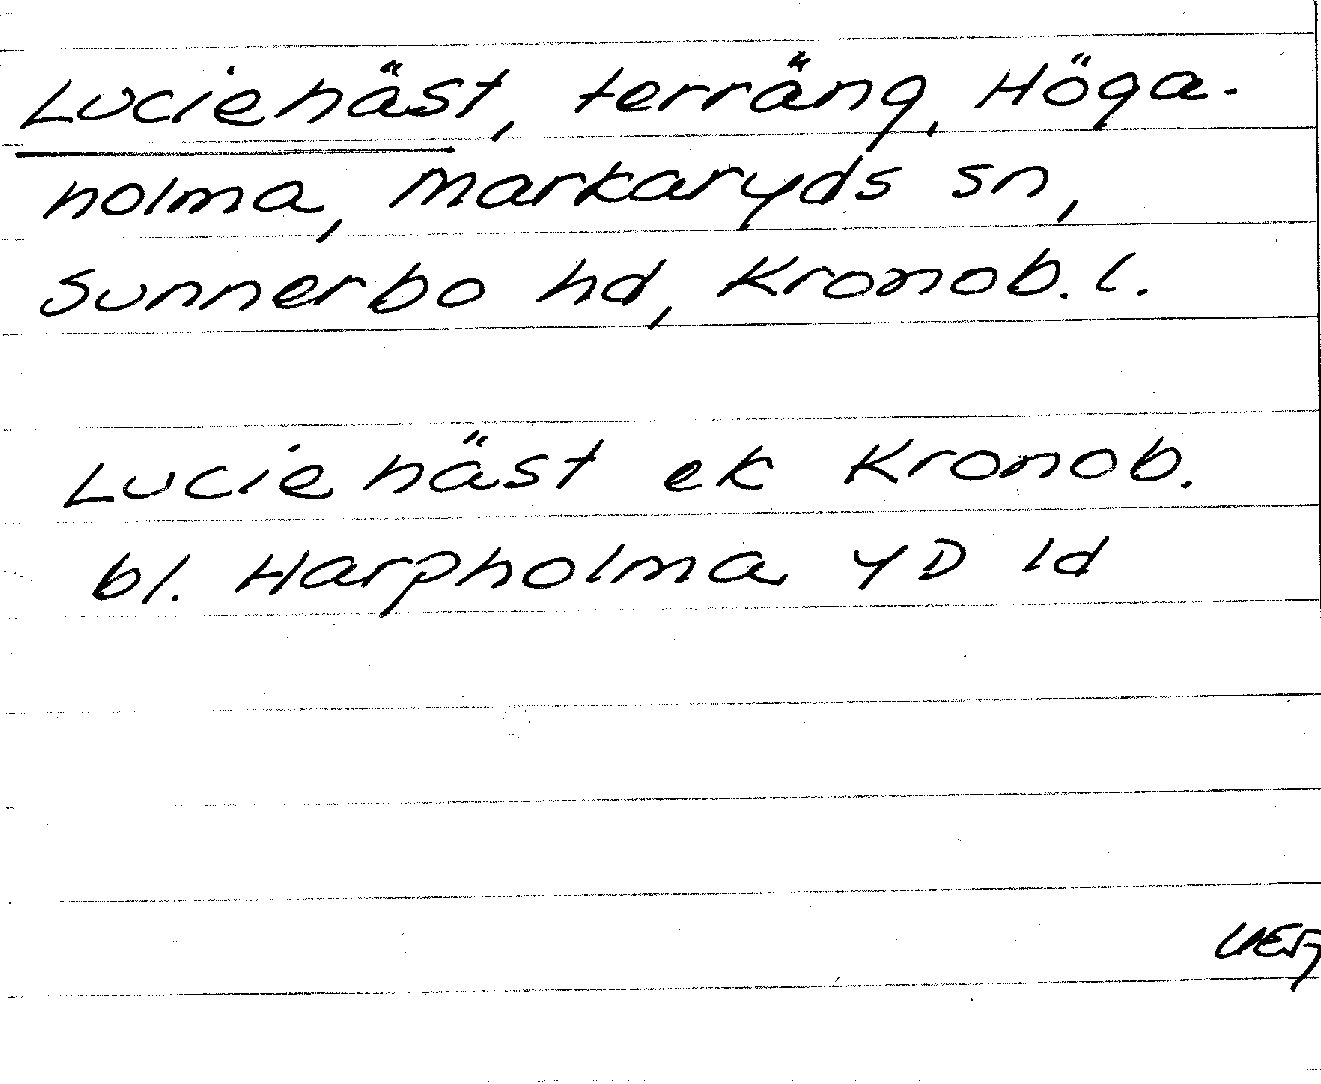 Luciehäst, terräng, Höga-
holma, Markaryds sn,
Sunnerbo hd, Kronob. l.
Lucie häst ek Kronob.
bl. Harpholma YD ld